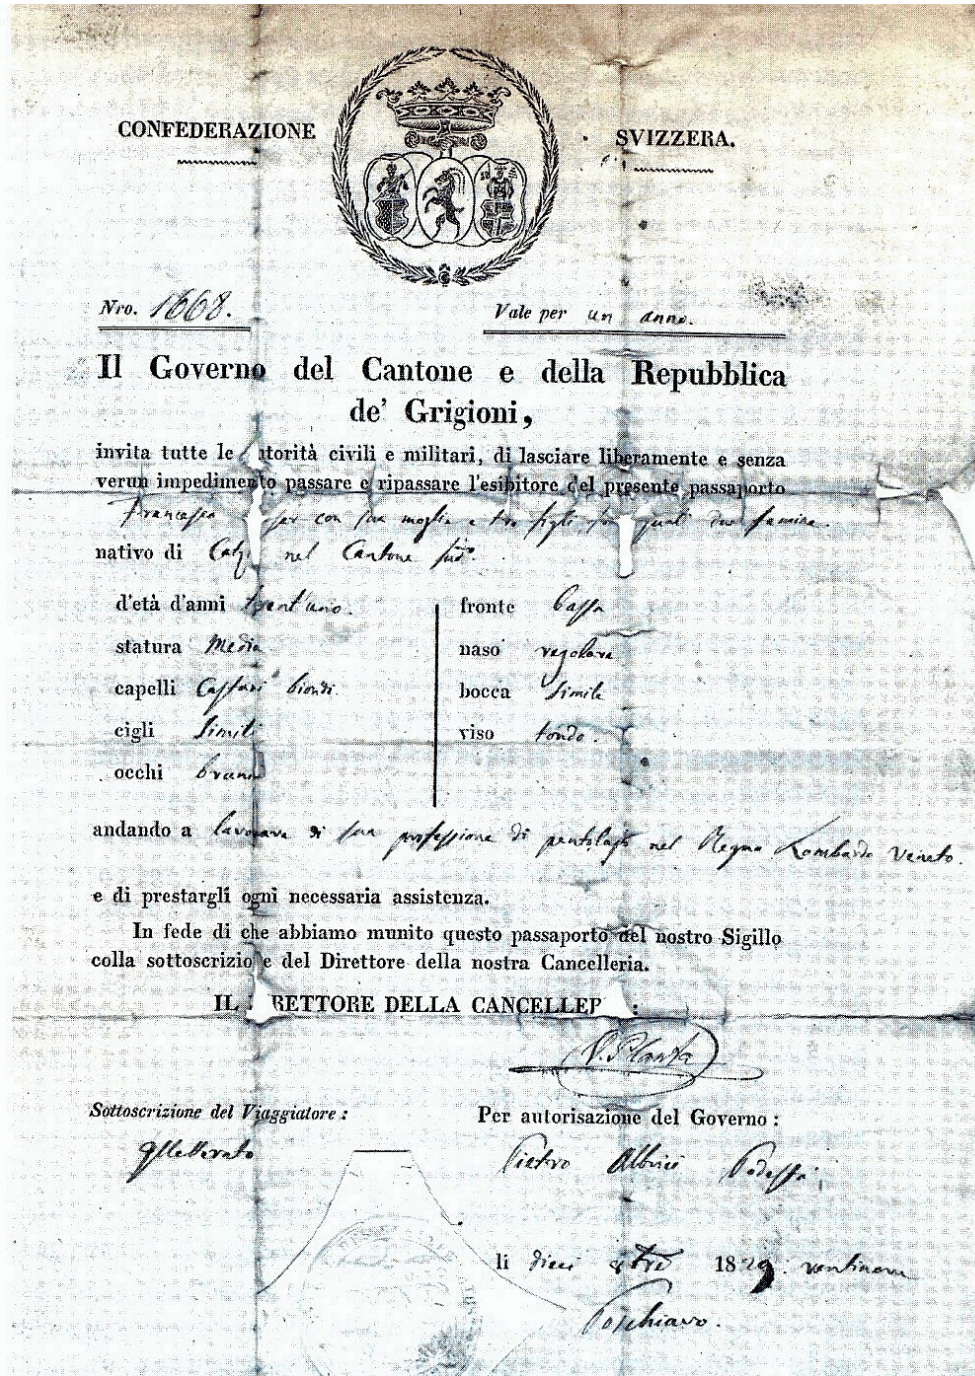 CONFEDERAZIONE SVIZZERA.
Nro. 1668. Vale per un anno.
Il Governo del Cantone e della Repubblica
de' Grigioni,
invita tutte le torità civili e militari, di lasciare liberamente e senza
verun impedimento passare e ripassare l'esibitore del presente passaporto
Francesco con sua moglie e tre figli quali due femine.
nativo di nel Cantone sud.º
d'età d'anni trent'uno. fronte bassa
statura Media naso regolare
capelli Castani biondi. bocca Simile
cigli Simili viso tondo.
occhi bruni
andando a lavorare di sua professione di pentolajo nel Regno Lombardo Veneto.
e di prestargli ogni necessaria assistenza.
In fede di che abbiamo munito questo passaporto del nostro Sigillo
colla sottoscrizione del Direttore della nostra Cancelleria.
IL RETTORE DELLA CANCELLER :
Planta
Sottoscrizione del Viaggiatore : Per autorisazione del Governo :
Illetterato Pietro Albrici Podestà
li dieci 1829. ventinove
Poschiavo.